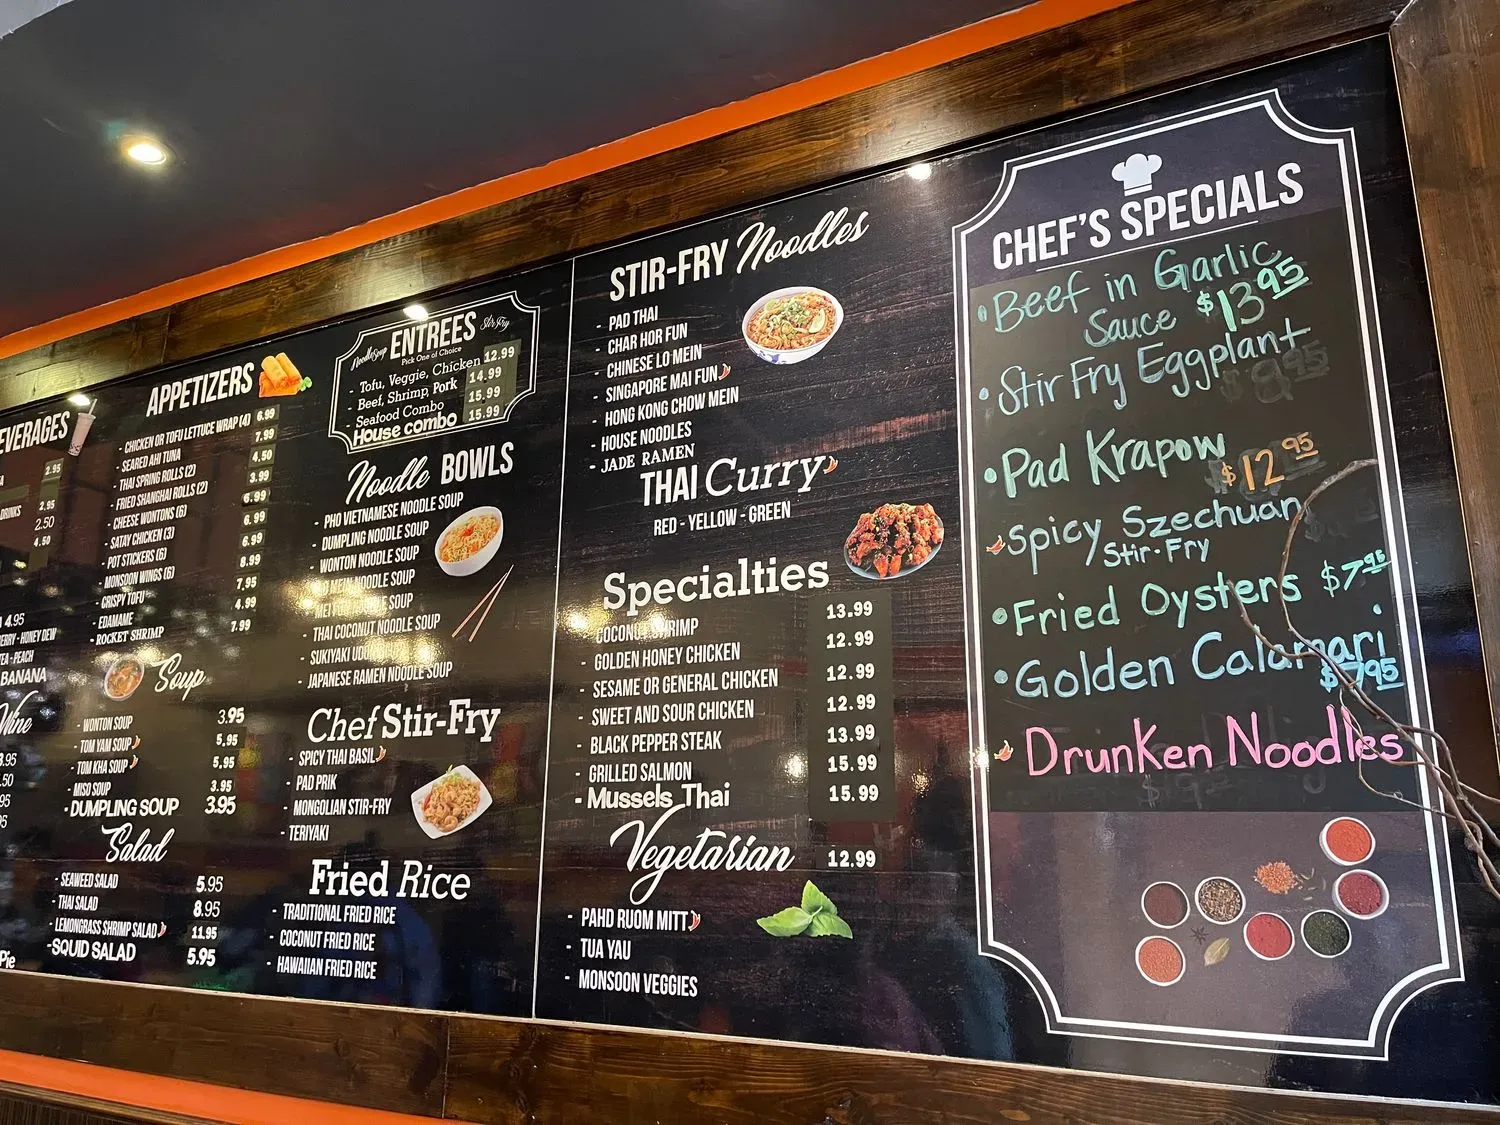 EVERAGES
2.95
DRINKS 2.95
2.50
4.50
4.95
ERRY - HONEY DEW
TEA - PEACH
BANANA
Wine
3.95
.50
95
95
Pie
APPETIZERS
- CHICKEN OR TOFU LETTUCE WRAP (4) 6.99
- SEARED AHI TUNA 7.99
- THAI SPRING ROLLS (2) 4.50
- FRIED SHANGHAI ROLLS (2) 3.99
- CHEESE WONTONS (6) 6.99
- SATAY CHICKEN (3) 6.99
- POT STICKERS (6) 6.99
- MONSOON WINGS (6) 8.99
- CRISPY TOFU 7.95
- EDAMAME 4.99
- ROCKET SHRIMP 7.99
Soup
- WONTON SOUP 3.95
- TOM YAM SOUP 5.95
- TOM KHA SOUP 5.95
- MISO SOUP 3.95
- DUMPLING SOUP 3.95
Salad
- SEAWEED SALAD 5.95
- THAI SALAD 8.95
- LEMONGRASS SHRIMP SALAD 11.95
- SQUID SALAD 5.95
Noodle Soup ENTREES Stir Fry
Pick One of Choice
- Tofu, Veggie, Chicken 12.99
- Beef, Shrimp, Pork 14.99
- Seafood Combo 15.99
House combo 15.99
Noodle BOWLS
- PHO VIETNAMESE NOODLE SOUP
- DUMPLING NOODLE SOUP
- WONTON NOODLE SOUP
MEIN NOODLE SOUP
NOODLE SOUP
- THAI COCONUT NOODLE SOUP
- SUKIYAKI UDON
- JAPANESE RAMEN NOODLE SOUP
Chef Stir-Fry
- SPICY THAI BASIL
- PAD PRIK
- MONGOLIAN STIR-FRY
- TERIYAKI
Fried Rice
- TRADITIONAL FRIED RICE
- COCONUT FRIED RICE
- HAWAIIAN FRIED RICE
STIR-FRY Noodles
- PAD THAI
- CHAR HOR FUN
- CHINESE LO MEIN
- SINGAPORE MAI FUN
- HONG KONG CHOW MEIN
- HOUSE NOODLES
- JADE RAMEN
THAI Curry
RED - YELLOW - GREEN
Specialties
COCONUT SHRIMP 13.99
- GOLDEN HONEY CHICKEN 12.99
- SESAME OR GENERAL CHICKEN 12.99
- SWEET AND SOUR CHICKEN 12.99
- BLACK PEPPER STEAK 13.99
- GRILLED SALMON 15.99
- Mussels Thai 15.99
Vegetarian 12.99
- PAHD RUOM MITT
- TUA YAU
- MONSOON VEGGIES
CHEF'S SPECIALS
• Beef in Garlic
Sauce $13.95
• Stir Fry Eggplant
• Pad Krapow
$12.95
Spicy Szechuan
Stir-Fry
• Fried Oysters $7.95
• Golden Calamari
$7.95
Drunken Noodles